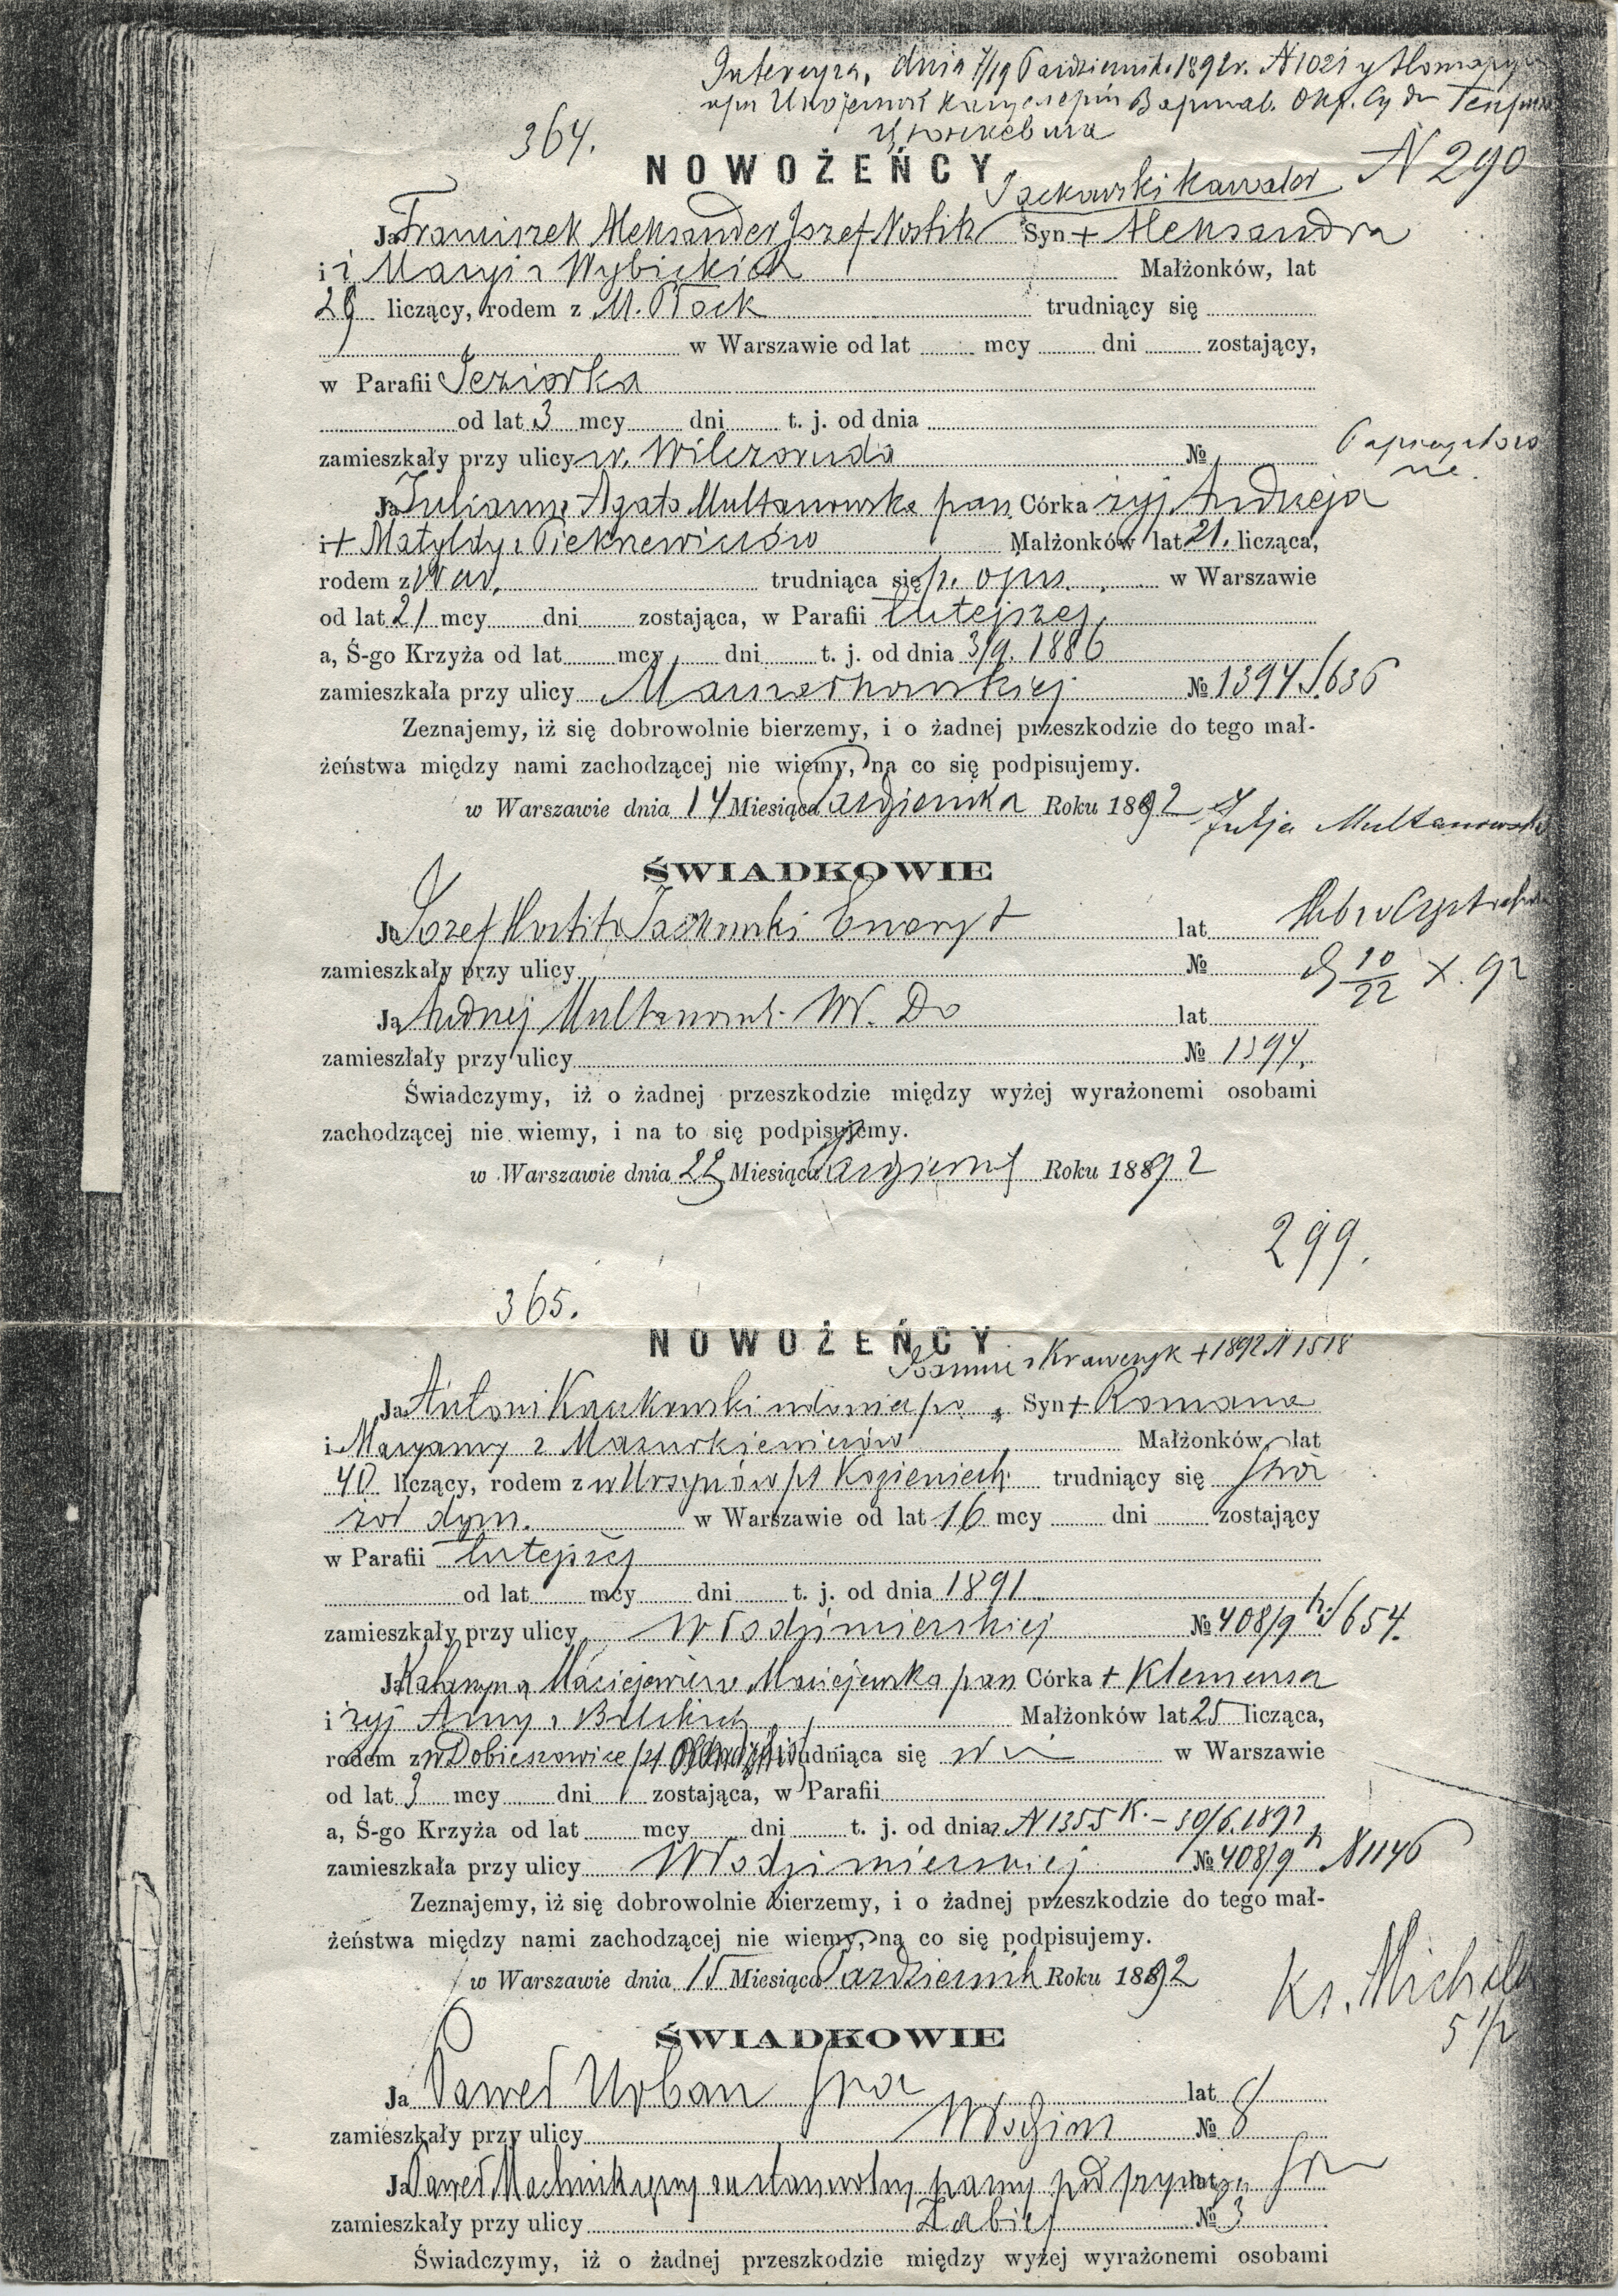 Intercyza, dnia 7/19 Października 1892r. N 1021 y
364.
NOWOŻEŃCY
N 290
Jackowski kawaler
Ja Franciszek Aleksander Józef Nostitz Syn + Aleksandra
i i Maryi z Wybickich Małżonków, lat
28 liczący, rodem z M. Płock trudniący się
w Warszawie od lat mcy dni zostający,
w Parafii Jeziorka
od lat 3 mcy dni t. j. od dnia
zamieszkały przy ulicy w. Wilczoruda №
Ja Julianna Agata Multanowska pan. Córka żyj. Andrzeja
i + Matyldy z Pieknewiczów Małżonków lat 21. licząca,
rodem z War. trudniąca się p. opie. w Warszawie
od lat 21 mcy dni zostająca, w Parafii tutejszej
a, Ś-go Krzyża od lat mcy dni t. j. od dnia 3/9. 1886
zamieszkała przy ulicy Marszałkowskiej № 1394 /636
Zeznajemy, iż się dobrowolnie bierzemy, i o żadnej przeszkodzie do tego mał-
żeństwa między nami zachodzącej nie wiemy, na co się podpisujemy.
w Warszawie dnia 14 Miesiąca Października Roku 1892 Julja Multanowska
ŚWIADKOWIE
Ja Józef Nostitz Jackowski Emeryt lat
zamieszkały przy ulicy №
D 10/22 X. 92
Ja Andrzej Multanowsk. W. Do lat
zamieszłały przy ulicy № 1394.
Świadczymy, iż o żadnej przeszkodzie między wyżej wyrażonemi osobami
zachodzącej nie wiemy, i na to się podpisujemy.
w Warszawie dnia 22 Miesiąca Październ Roku 1892
299.
365.
NOWOŻEŃCY
z Krawczyk + 1892 N 1518
Ja Antoni Kaczkowski wdowiec po Syn + Romana
i Maryanny z Mazurkiewiczów Małżonków lat
40 liczący, rodem z w Ursynów pt Kozieniech trudniący się stró
żół dym. w Warszawie od lat 16 mcy dni zostający
w Parafii tutejszej
od lat mcy dni t. j. od dnia 1891
zamieszkały przy ulicy Włodzimierskiej № 408/9 /654.
Ja Katarzyna Maciejewicz v. Maciejewska pan Córka + Klemensa
i żyj Anny z Bilskich Małżonków lat 25 licząca,
rodem z w Dobieszowice pt trudniąca się w Warszawie
od lat 3 mcy dni zostająca, w Parafii
a, Ś-go Krzyża od lat mcy dni t. j. od dnia N 1355 K. – 30/6.1891
zamieszkała przy ulicy Włodzimierskiej № 408/9 N 1146
Zeznajemy, iż się dobrowolnie bierzemy, i o żadnej przeszkodzie do tego mał-
żeństwa między nami zachodzącej nie wiemy, na co się podpisujemy.
w Warszawie dnia 15 Miesiąca Październik Roku 1892
Ks. Michała
5 1/2
ŚWIADKOWIE
Ja Paweł Urban lat
zamieszkały przy ulicy Włodzim № 8
Ja Paweł Machnik lat
zamieszkały przy ulicy Żabiej № 3
Świadczymy, iż o żadnej przeszkodzie między wyżej wyrażonemi osobami